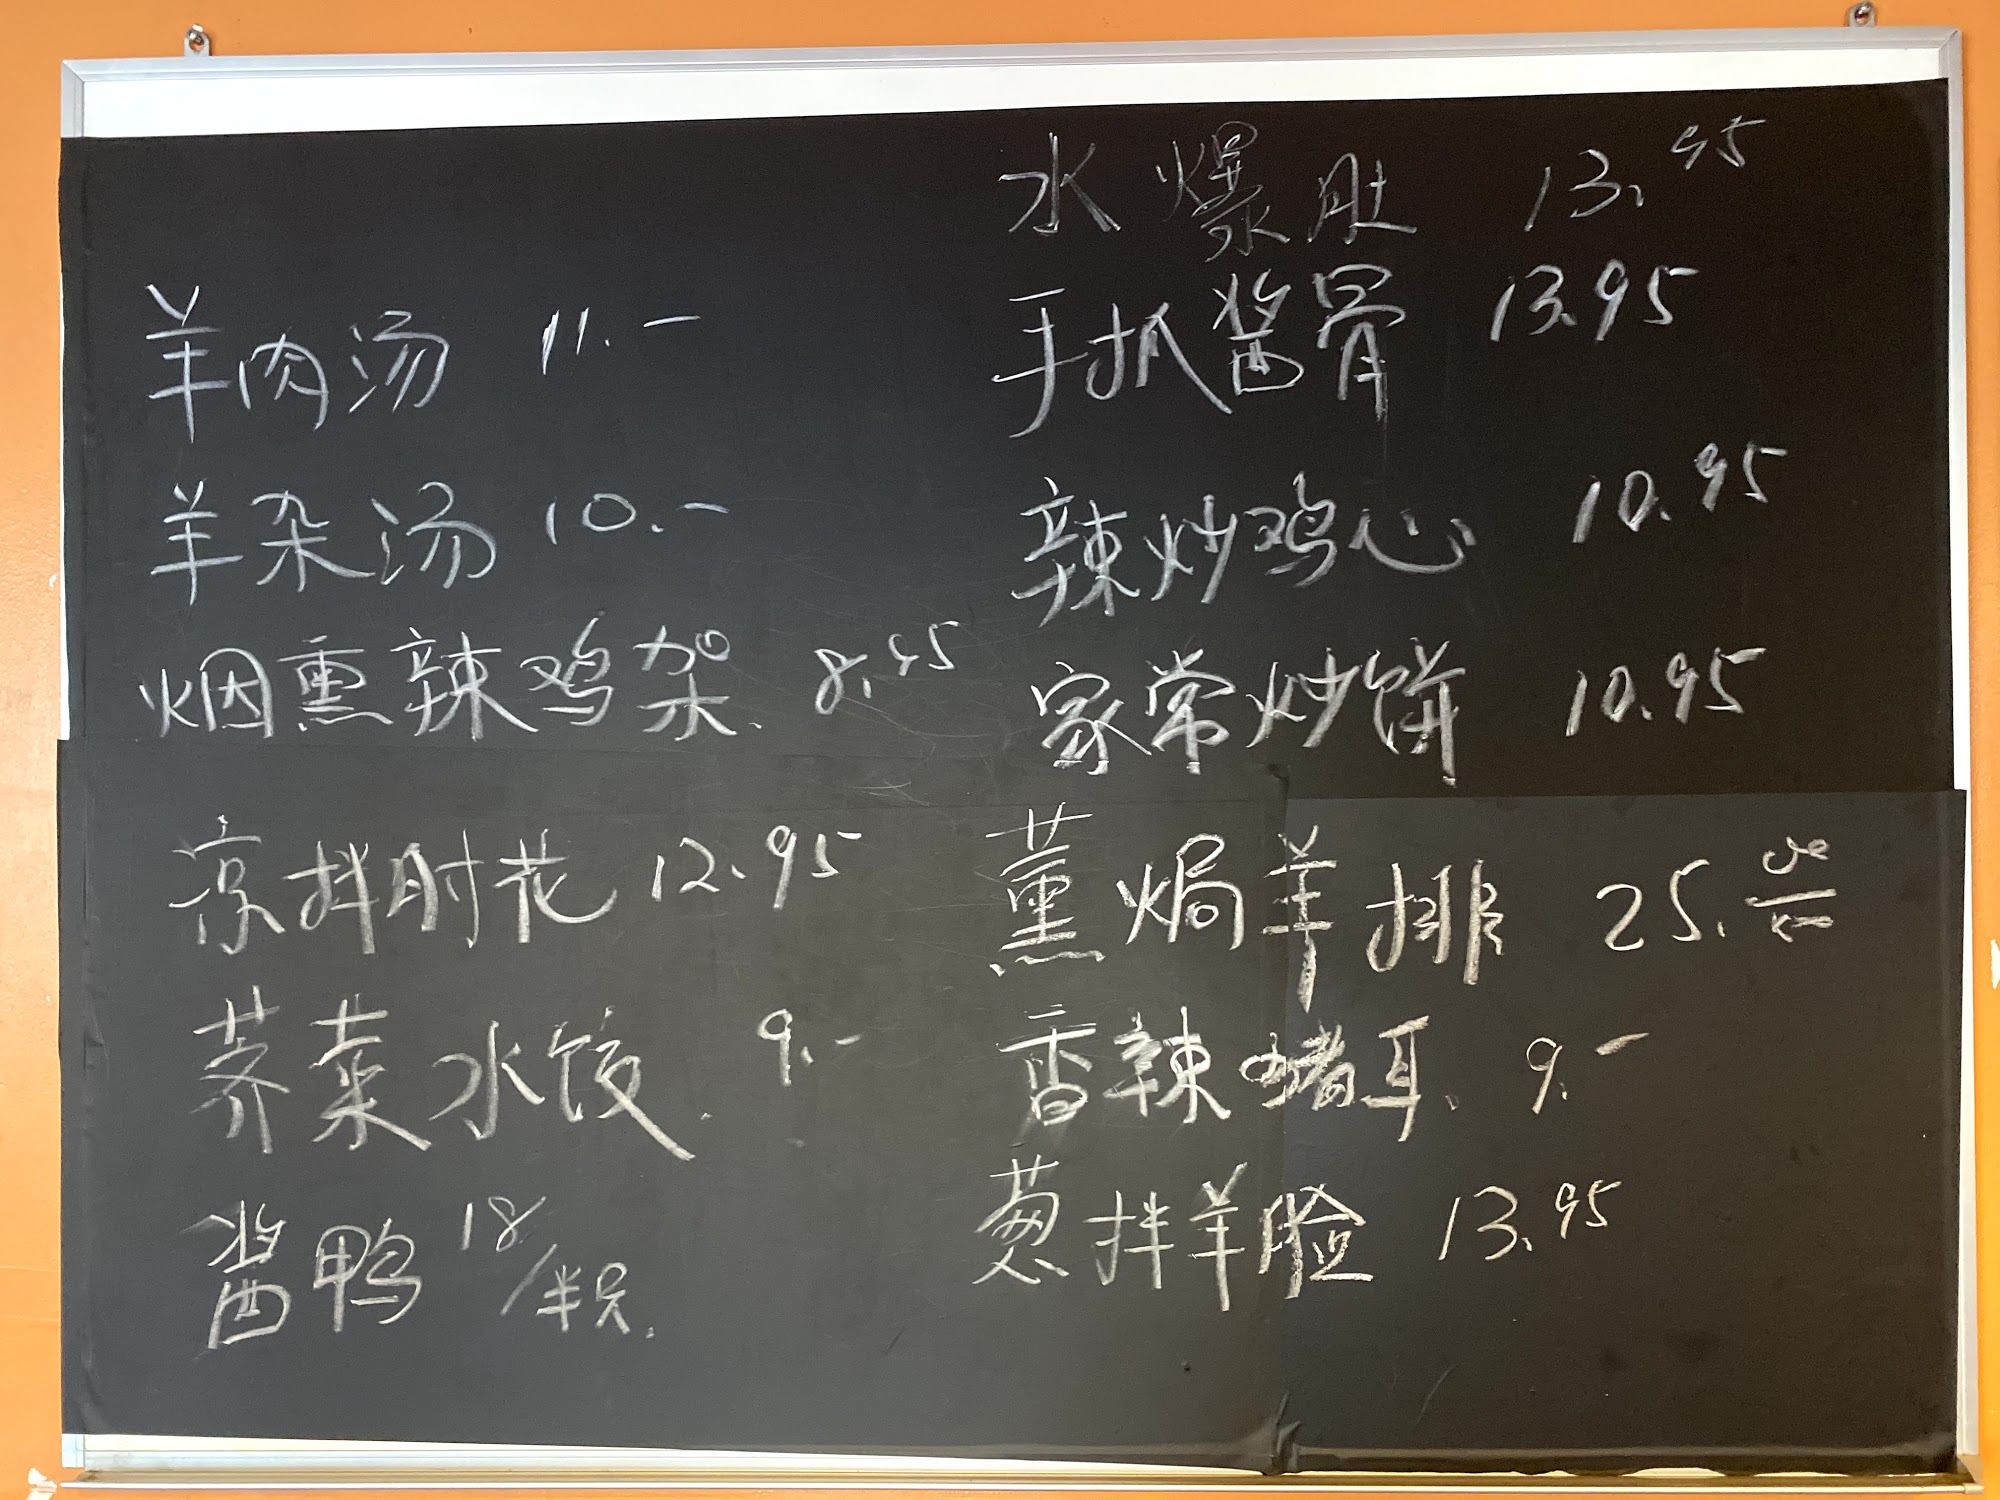 羊肉汤 11.-
羊杂汤 10.-
烟熏辣鸡架. 8.95
凉拌肘花 12.95
荠菜水饺. 9.-
酱鸭 18/半只.
水爆肚 13.95
手抓酱骨 13.95
辣炒鸡心 10.95
家常炒饼 10.95
薰焗羊排 25.
香辣猪耳. 9.-
葱拌羊脸 13.95